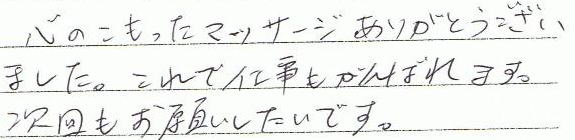 心のこもったマッサージありがとうござい
ました。これで仕事もがんばれます。
次回もお願いしたいです。